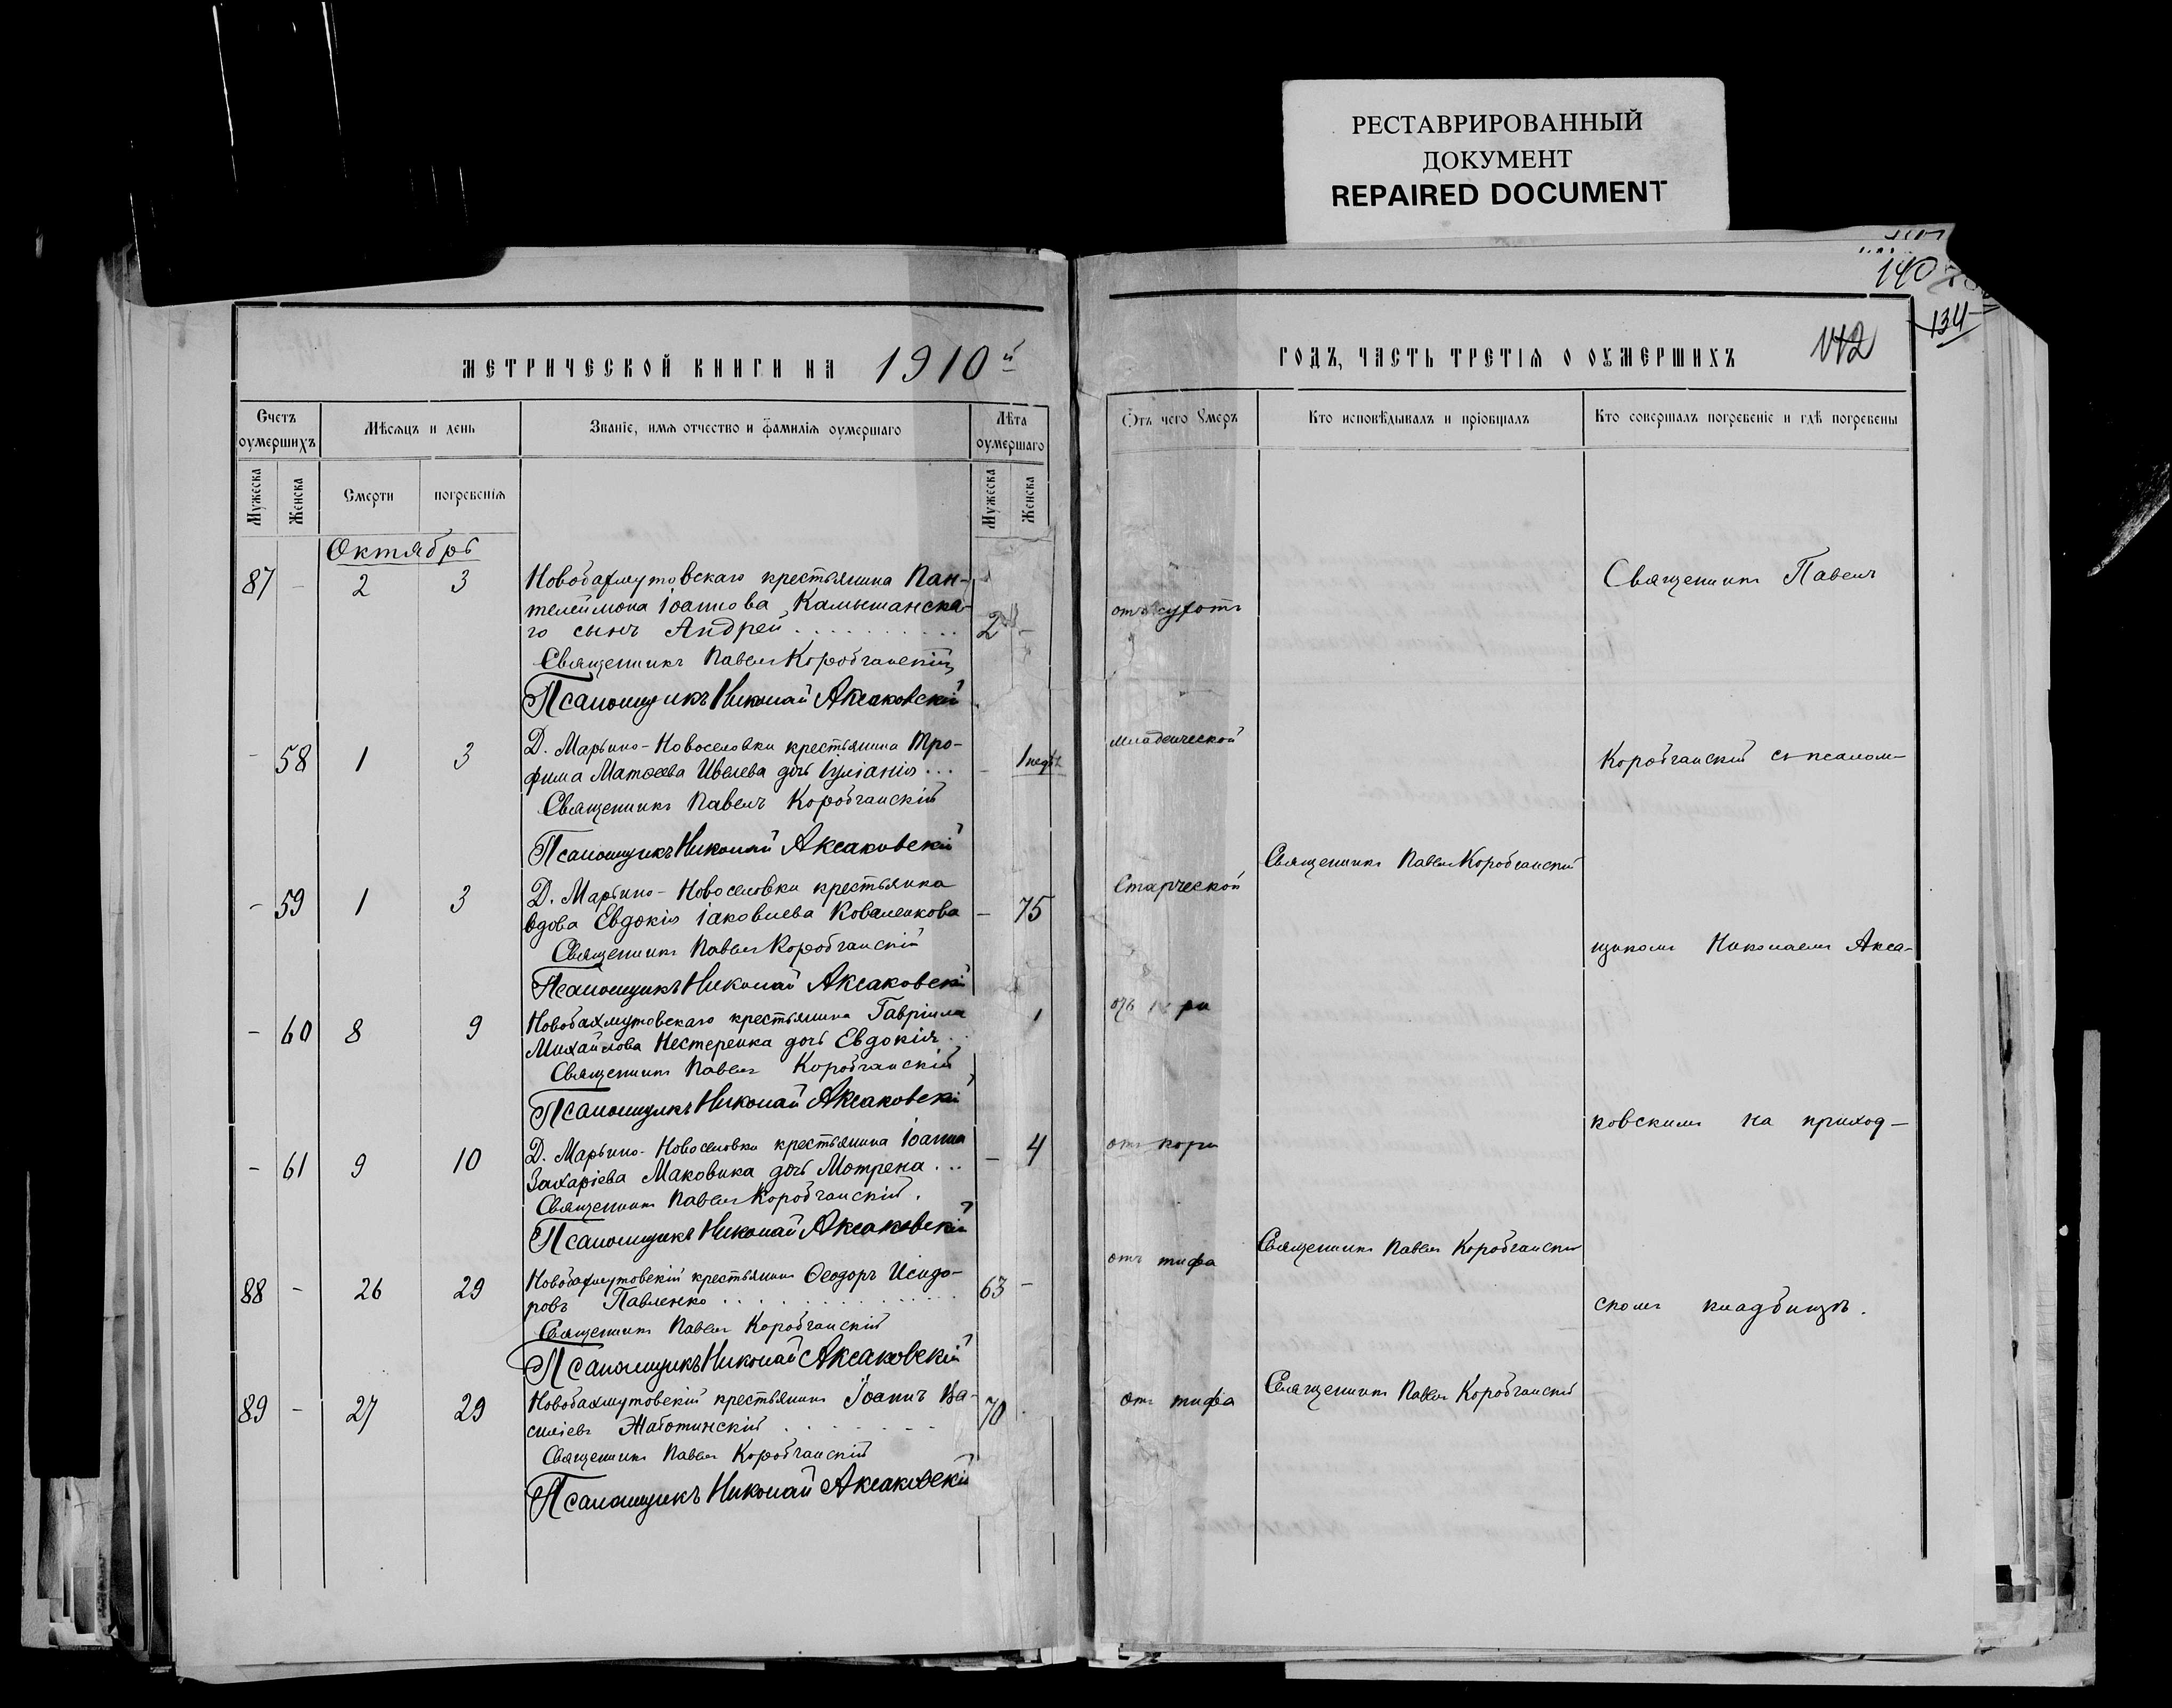 РЕСТАВРИРОВАННЫЙ
ДОКУМЕНТ
REPAIRED DOCUMENT
140
134
142
МЕТРИЧЕСКОЙ КНИГИ НА 1910й
ГОДЪ, ЧАСТЬ ТРЕТІЯ О ОУМЕРШИХЪ
Счетъ оумершихъ
Мѣсяцъ и день
Званіе, имя отчество и фамилія оумершаго
Лѣта оумершаго
Отъ чего Умеръ
Кто исповѣдывалъ и пріобщалъ
Кто совершалъ погребеніе и гдѣ погребены
Мужеска
Женска
Смерти
погребенія
Мужеска
Женска
Октябрь
87 - 2 3 Новобахмутовскаго крестьянина Пан-
телеимона Іоаннова Камышанска-
го сынъ Андрей . . . . . . . . . . 2 -
отъ сухотъ
Священникъ Павелъ
Священникъ Павелъ Коробчанскій
Псаломщикъ Николай Аксаковскій
- 58 1 3 Д. Марьино-Новоселовки крестьянина Тро-
фима Матѳеева Ивлева дочь Іуліанія ... - 1 нед.
младенческой
Коробчанскій съ псалом-
Священникъ Павелъ Коробчанскій
Псаломщикъ Николай Аксаковскій
- 59 1 3 Д. Марьино-Новоселовки крестьянка
вдова Евдокія Іаковлева Коваленкова - 75
Старческой
Священникъ Павелъ Коробчанскій
Священникъ Павелъ Коробчанскій
щикомъ Николаемъ Акса-
Псаломщикъ Николай Аксаковскій
- 60 8 9 Новобахмутовскаго крестьянина Гавріила
Михайлова Нестеренка дочь Евдокія . . 1
Священникъ Павелъ Коробчанскій
Псаломщикъ Николай Аксаковскій
ковскимъ на приход-
- 61 9 10 Д. Марьино-Новоселовки крестьянина Іоанна
Захаріева Маковика дочь Мотрена ... - 4
отъ кори
Священникъ Павелъ Коробчанскій.
Псаломщикъ Николай Аксаковскій
88 - 26 29 Новобахмутовскій крестьянинъ Ѳеодоръ Исидо-
ровъ Павленко . . . . . . . . . . 63 -
отъ тифа
Священникъ Павелъ Коробчанскій
скомъ кладбищѣ.
Священникъ Павелъ Коробчанскій
Псаломщикъ Николай Аксаковскій
89 - 27 29 Новобахмутовскій крестьянинъ Іоаннъ Ва-
силіевъ Жаботинскій . . . . . . 70
отъ тифа
Священникъ Павелъ Коробчанскій
Священникъ Павелъ Коробчанскій
Псаломщикъ Николай Аксаковскій